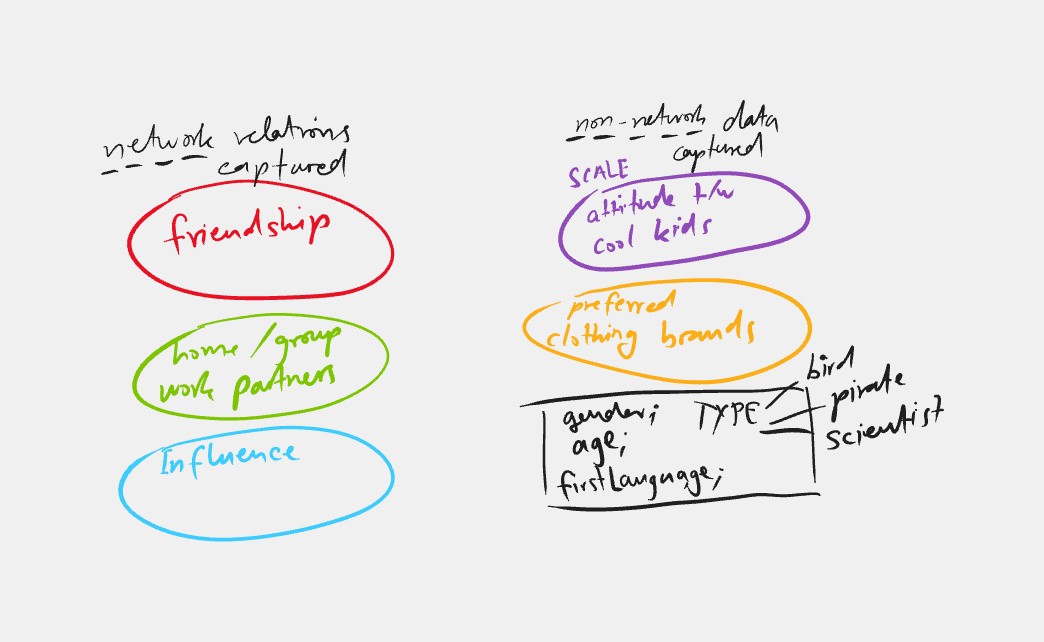 network relations
captured
friendship
home/group
work partners
Influence
non-network data
captured
SCALE
attitude t/w
cool kids
preferred
clothing brands
gender; TYPE
age;
firstLanguage;
bird
pirate
scientist